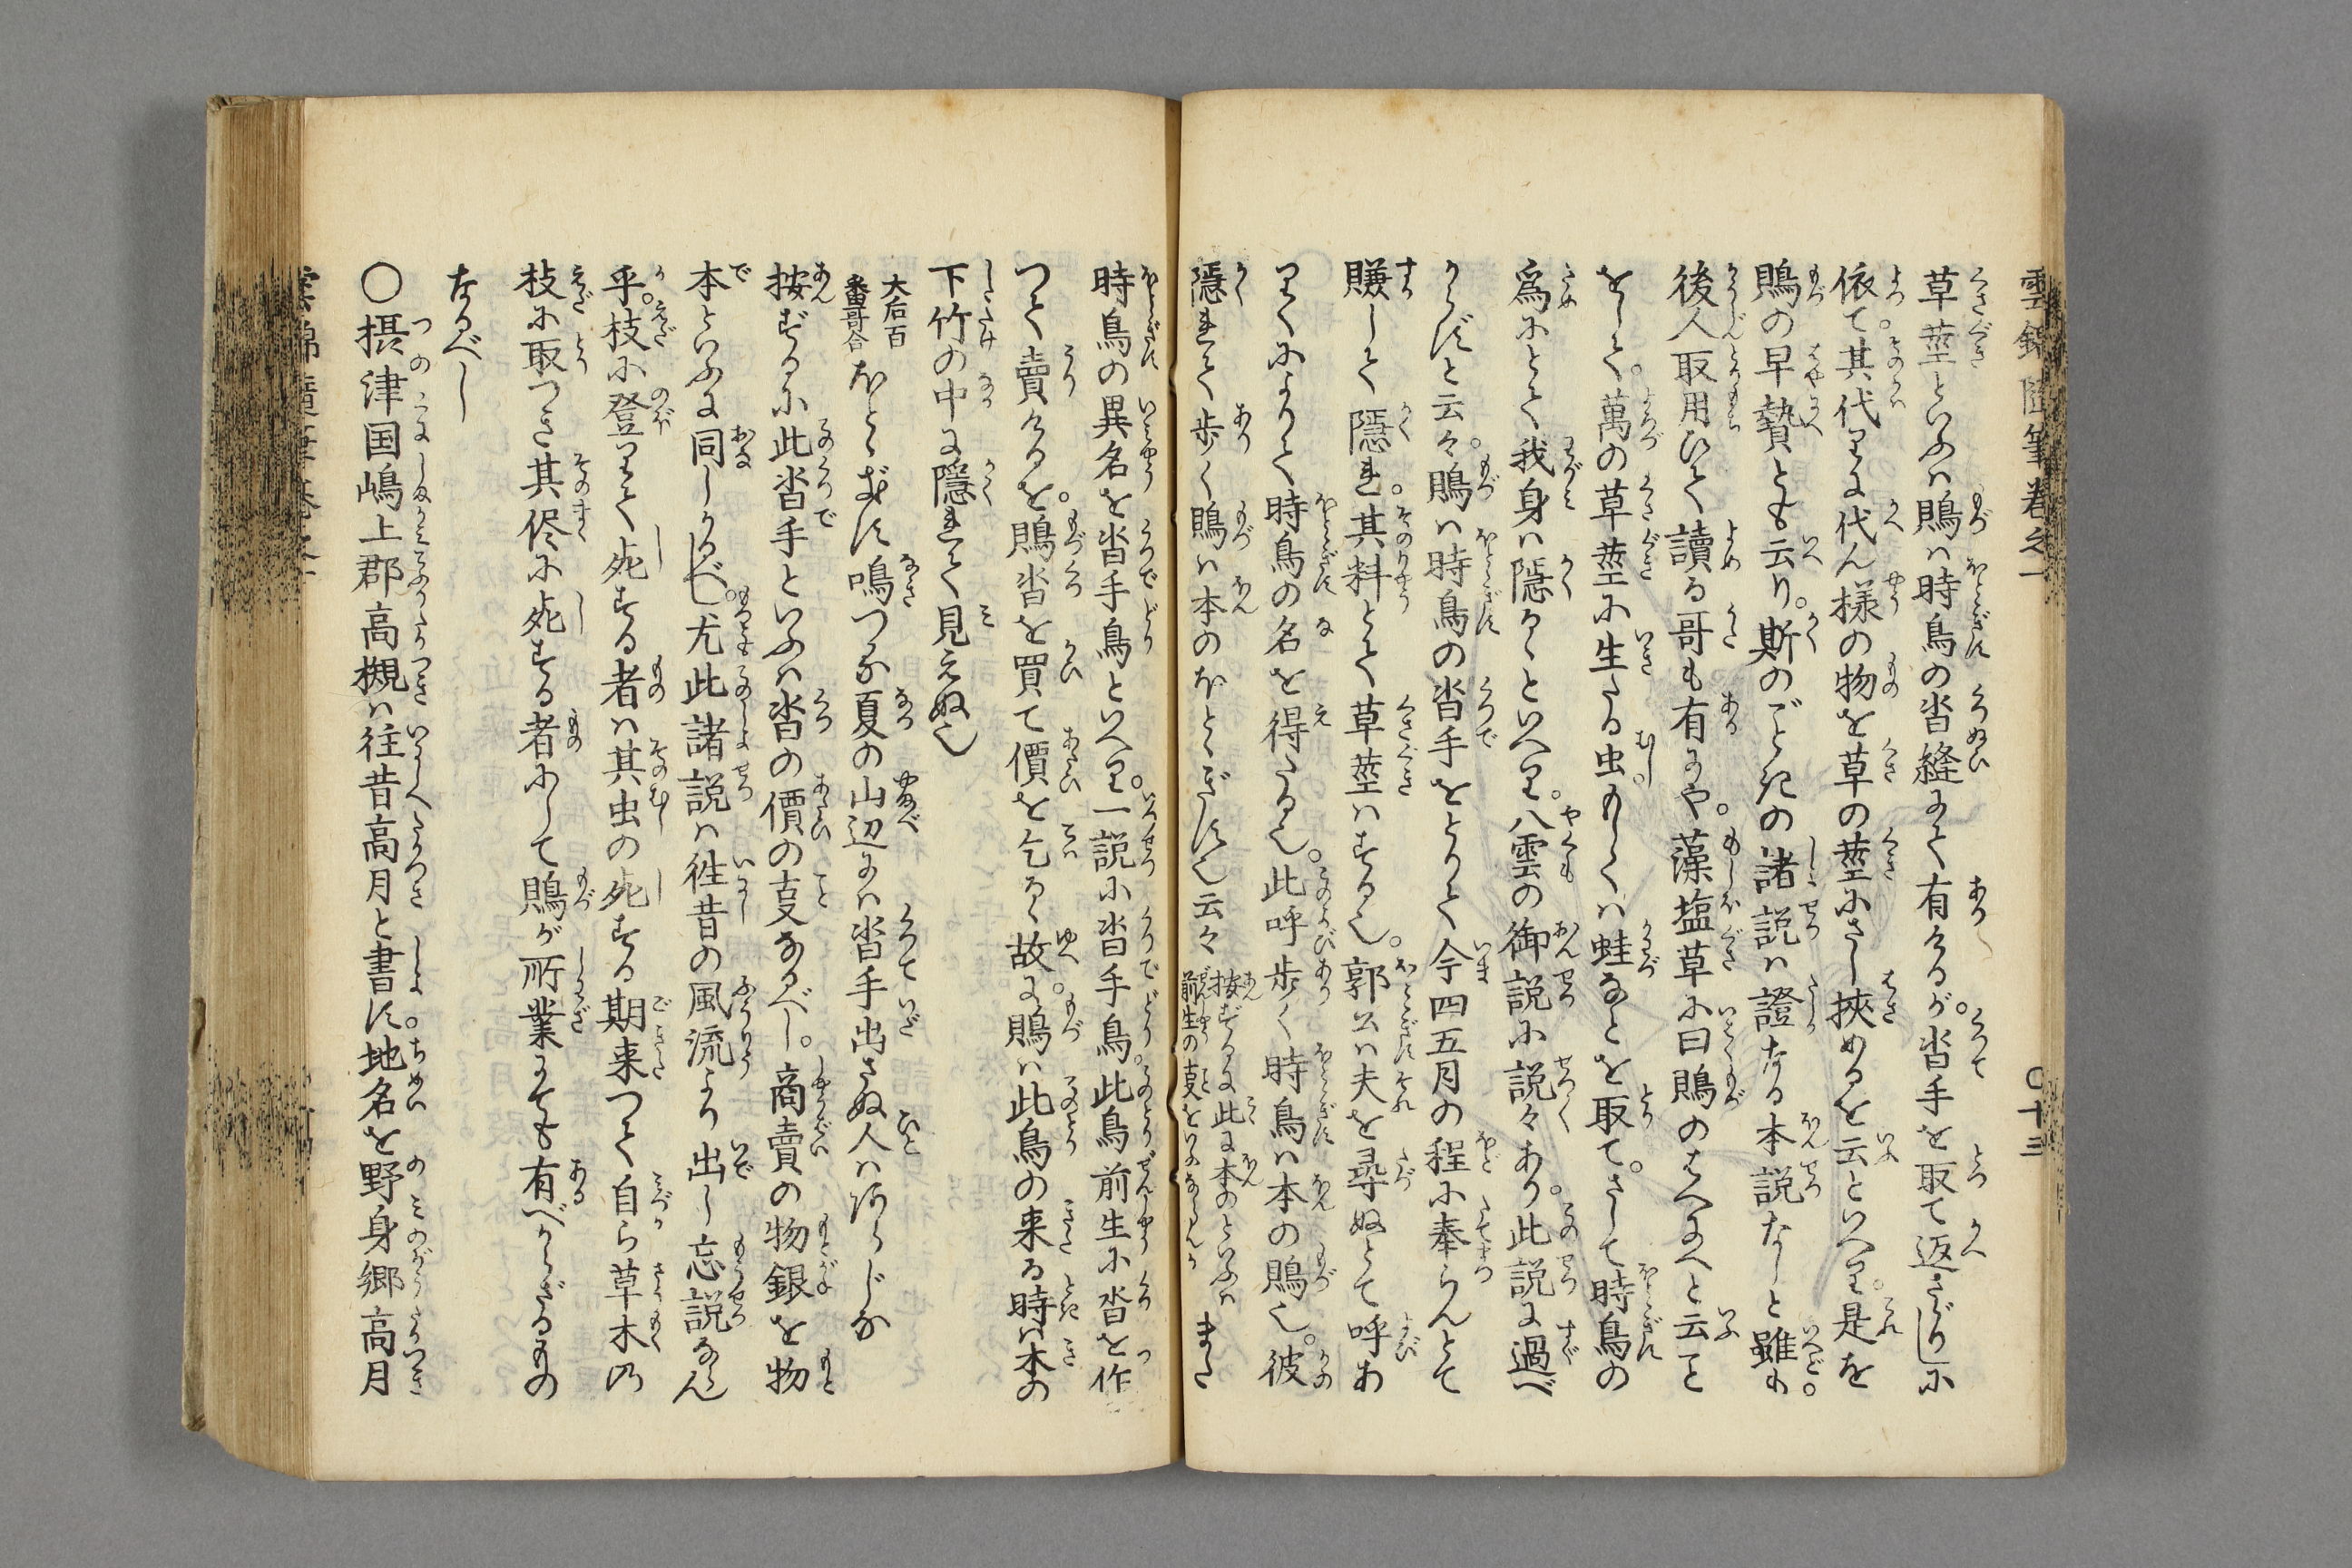 雲錦随筆巻之一　〇十三
草莖といふハ鵙ハ時鳥の沓縫にて有けるが。沓手を取て返さゞりしに
依て。其代りに代ん様の物を草の莖にさし挾めるを云といへり。是を
鵙の早贄とも云り。斯のごときの諸説ハ證なる本説なしと雖も。
後人取用ひて讀る哥も有にや。藻塩草に曰鵙のはやにへと云こと
をして。萬の草莖に生たる虫。もしくハ蛙などを取て。さして時鳥の
爲にとて我身ハ隠るゝといへり。八雲の御説に説々あり。此説に過べ
からずと云々。鵙ハ時鳥の沓手をとりて今四五月の程に奉らんとて
賺して隠れ。其料とて草莖ハする也。郭公ハ夫を尋ぬとて呼あ
りくによりて時鳥の名を得たる也。此呼歩く時鳥ハ本の鵙也。彼
隠れて歩く鵙ハ本のほとゝぎす也云々
按ずるに此に本のといふハ
前生の事をいふならんか
また
時鳥の異名を沓手鳥といへり。一説に沓手鳥。此鳥前生に沓を作
つて賣けるを。鵙沓を買て價を乞るゝ故に。鵙ハ此鳥の来る時ハ木の
下竹の中に隠れて見えぬ也
大后百
番哥合
ほとゝぎす鳴つる夏の山辺にハ沓手出さぬ人ハあらじな
按ずるに此沓手といふハ沓の價の事なるべし。商賣の物銀を物
本といふに同しかるべし。尤此諸説ハ徃昔の風流より出し忘説ならん
乎。枝に登りて死する者ハ其虫の死する期来つて自ら草木の
枝に取つき其侭に死する者にして鵙が所業にても有べからざるもの
なるべし
〇摂津国嶋上郡高槻ハ往昔高月と書す。地名を野身郷高月